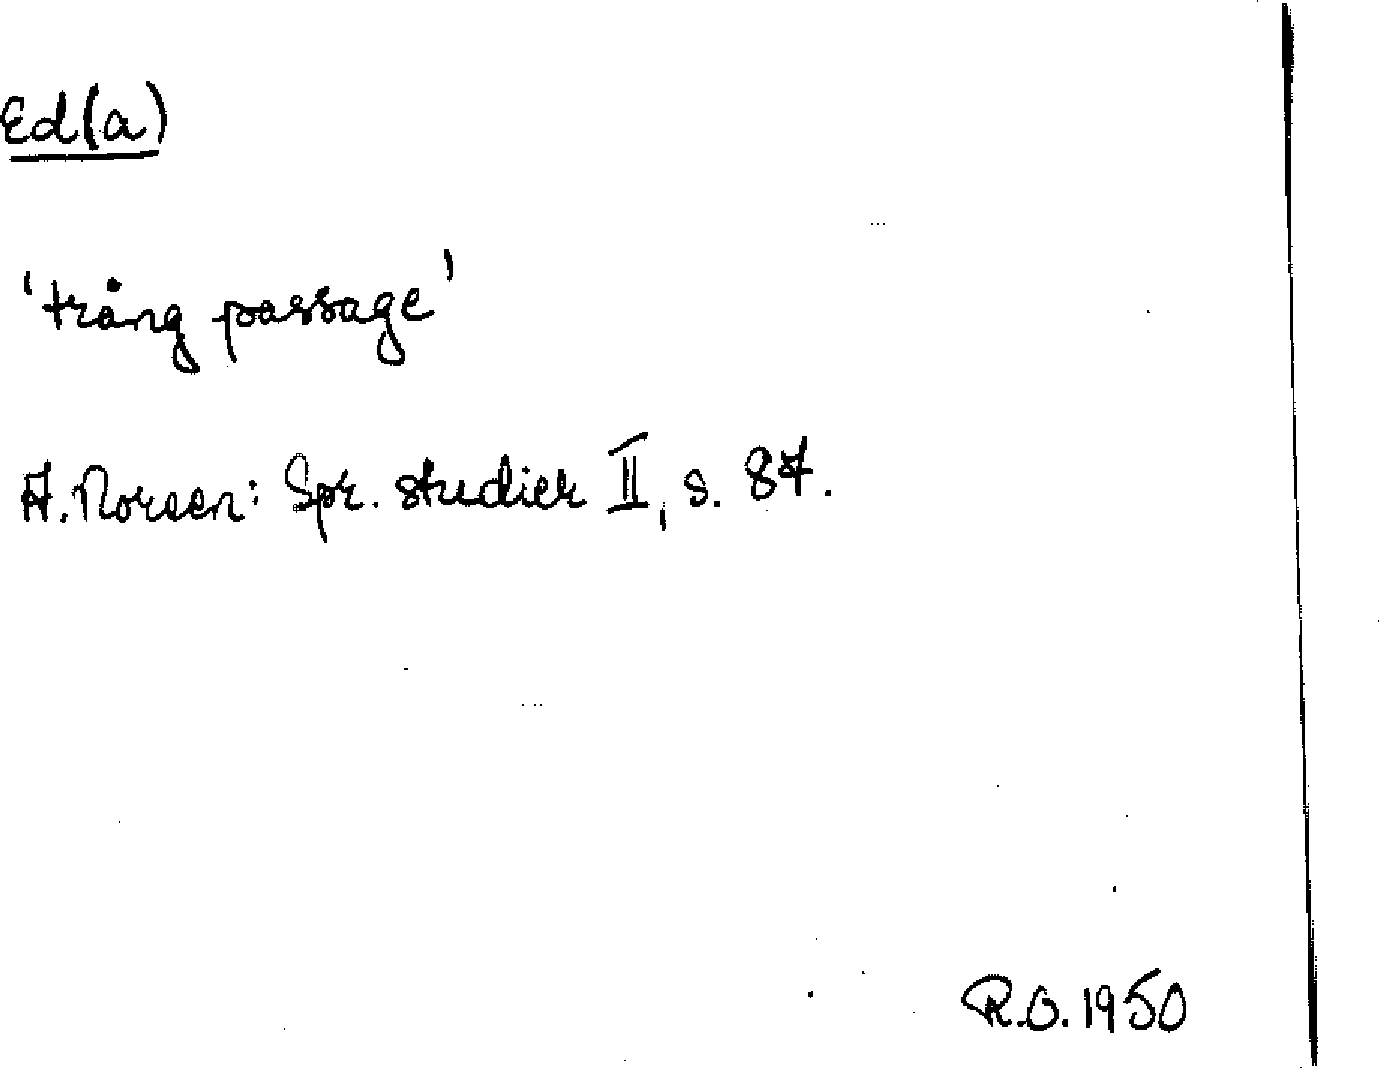 Ed(a)
'trång passage'
A. Noreen: Spr. studier II, s. 87.
R.O. 1950